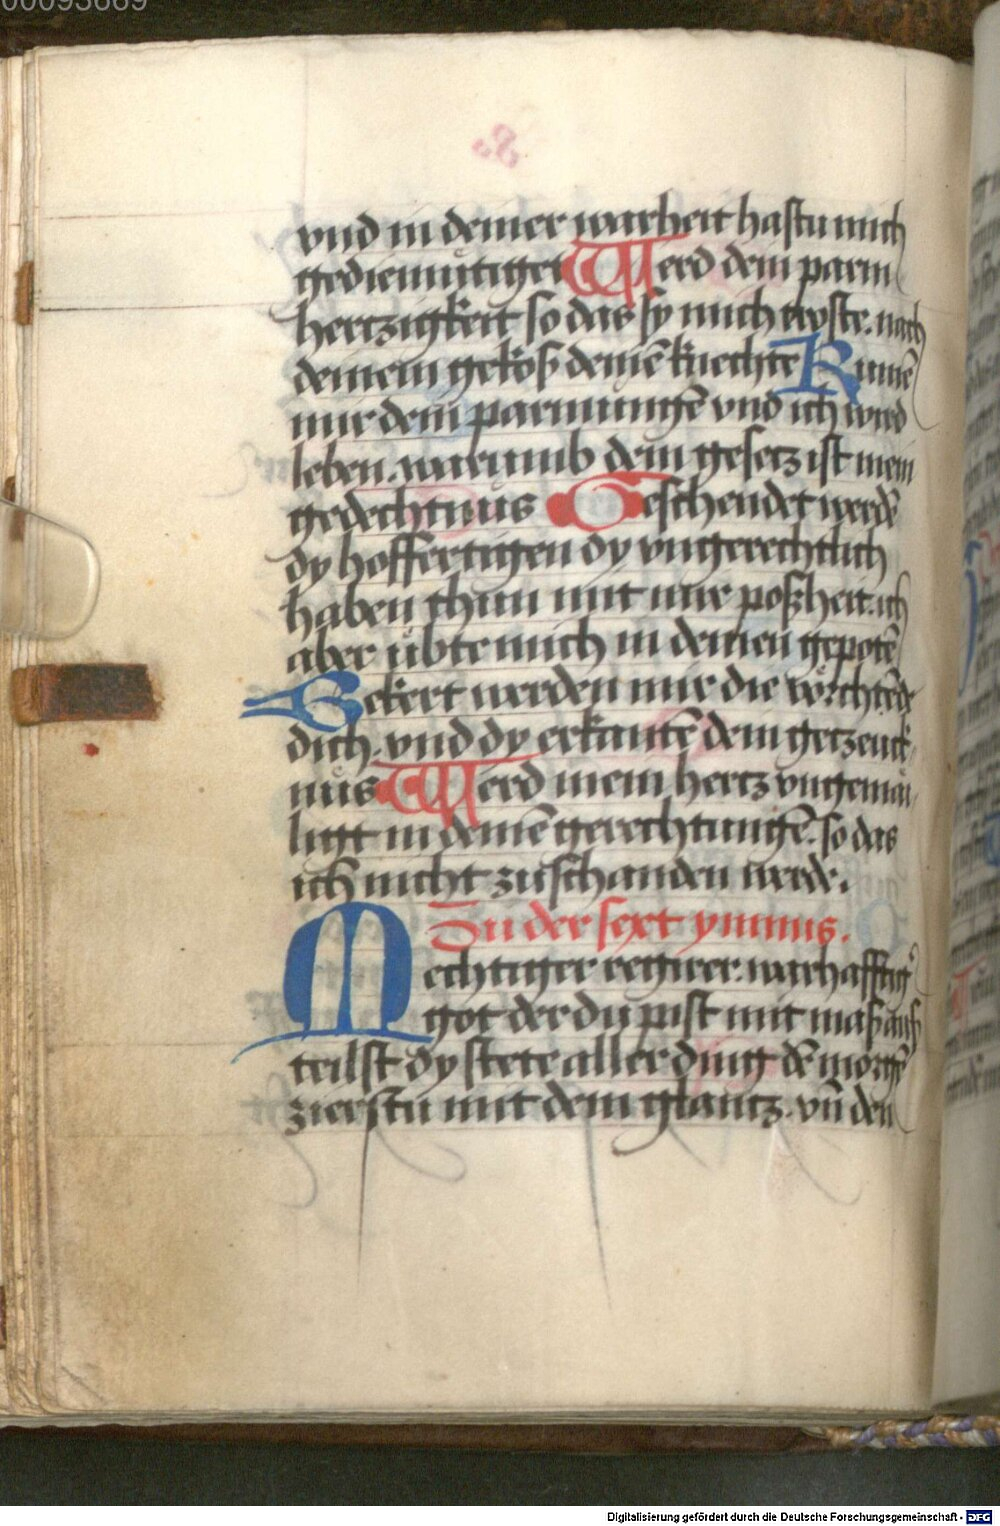 00093669
vnd in deiner warheit hastu mich
gediemutiget Werd dein parm
hertzigkeit so das sy mich tröste. nach
deinem gekoß deinē knechte Kumē
mir dein parmungē vnd ich wird
leben. warumb dein gesetz ist mein
gedechtnüs Geschendet werdē
dy hoffertigen dy vngerechtlich
haben thun mit mir poßheit. ich
aber übte mich in deinen gepotē
Bekert werden mir die vörchtēde
dich. vnd dy erkantē dein getzeuck
nüs Werd mein hertz vngemai
ligt in deinē gerechtungē. so das
ich nicht zuschanden werde.
Zu der sext ymnus.
Mechtiger regirer. warhafftig
got der du pist mit maß auß
teilst dy stete aller ding dē morgē
zierstu mit dem glantz. vn̄ den
Digitalisierung gefördert durch die Deutsche Forschungsgemeinschaft - DFG